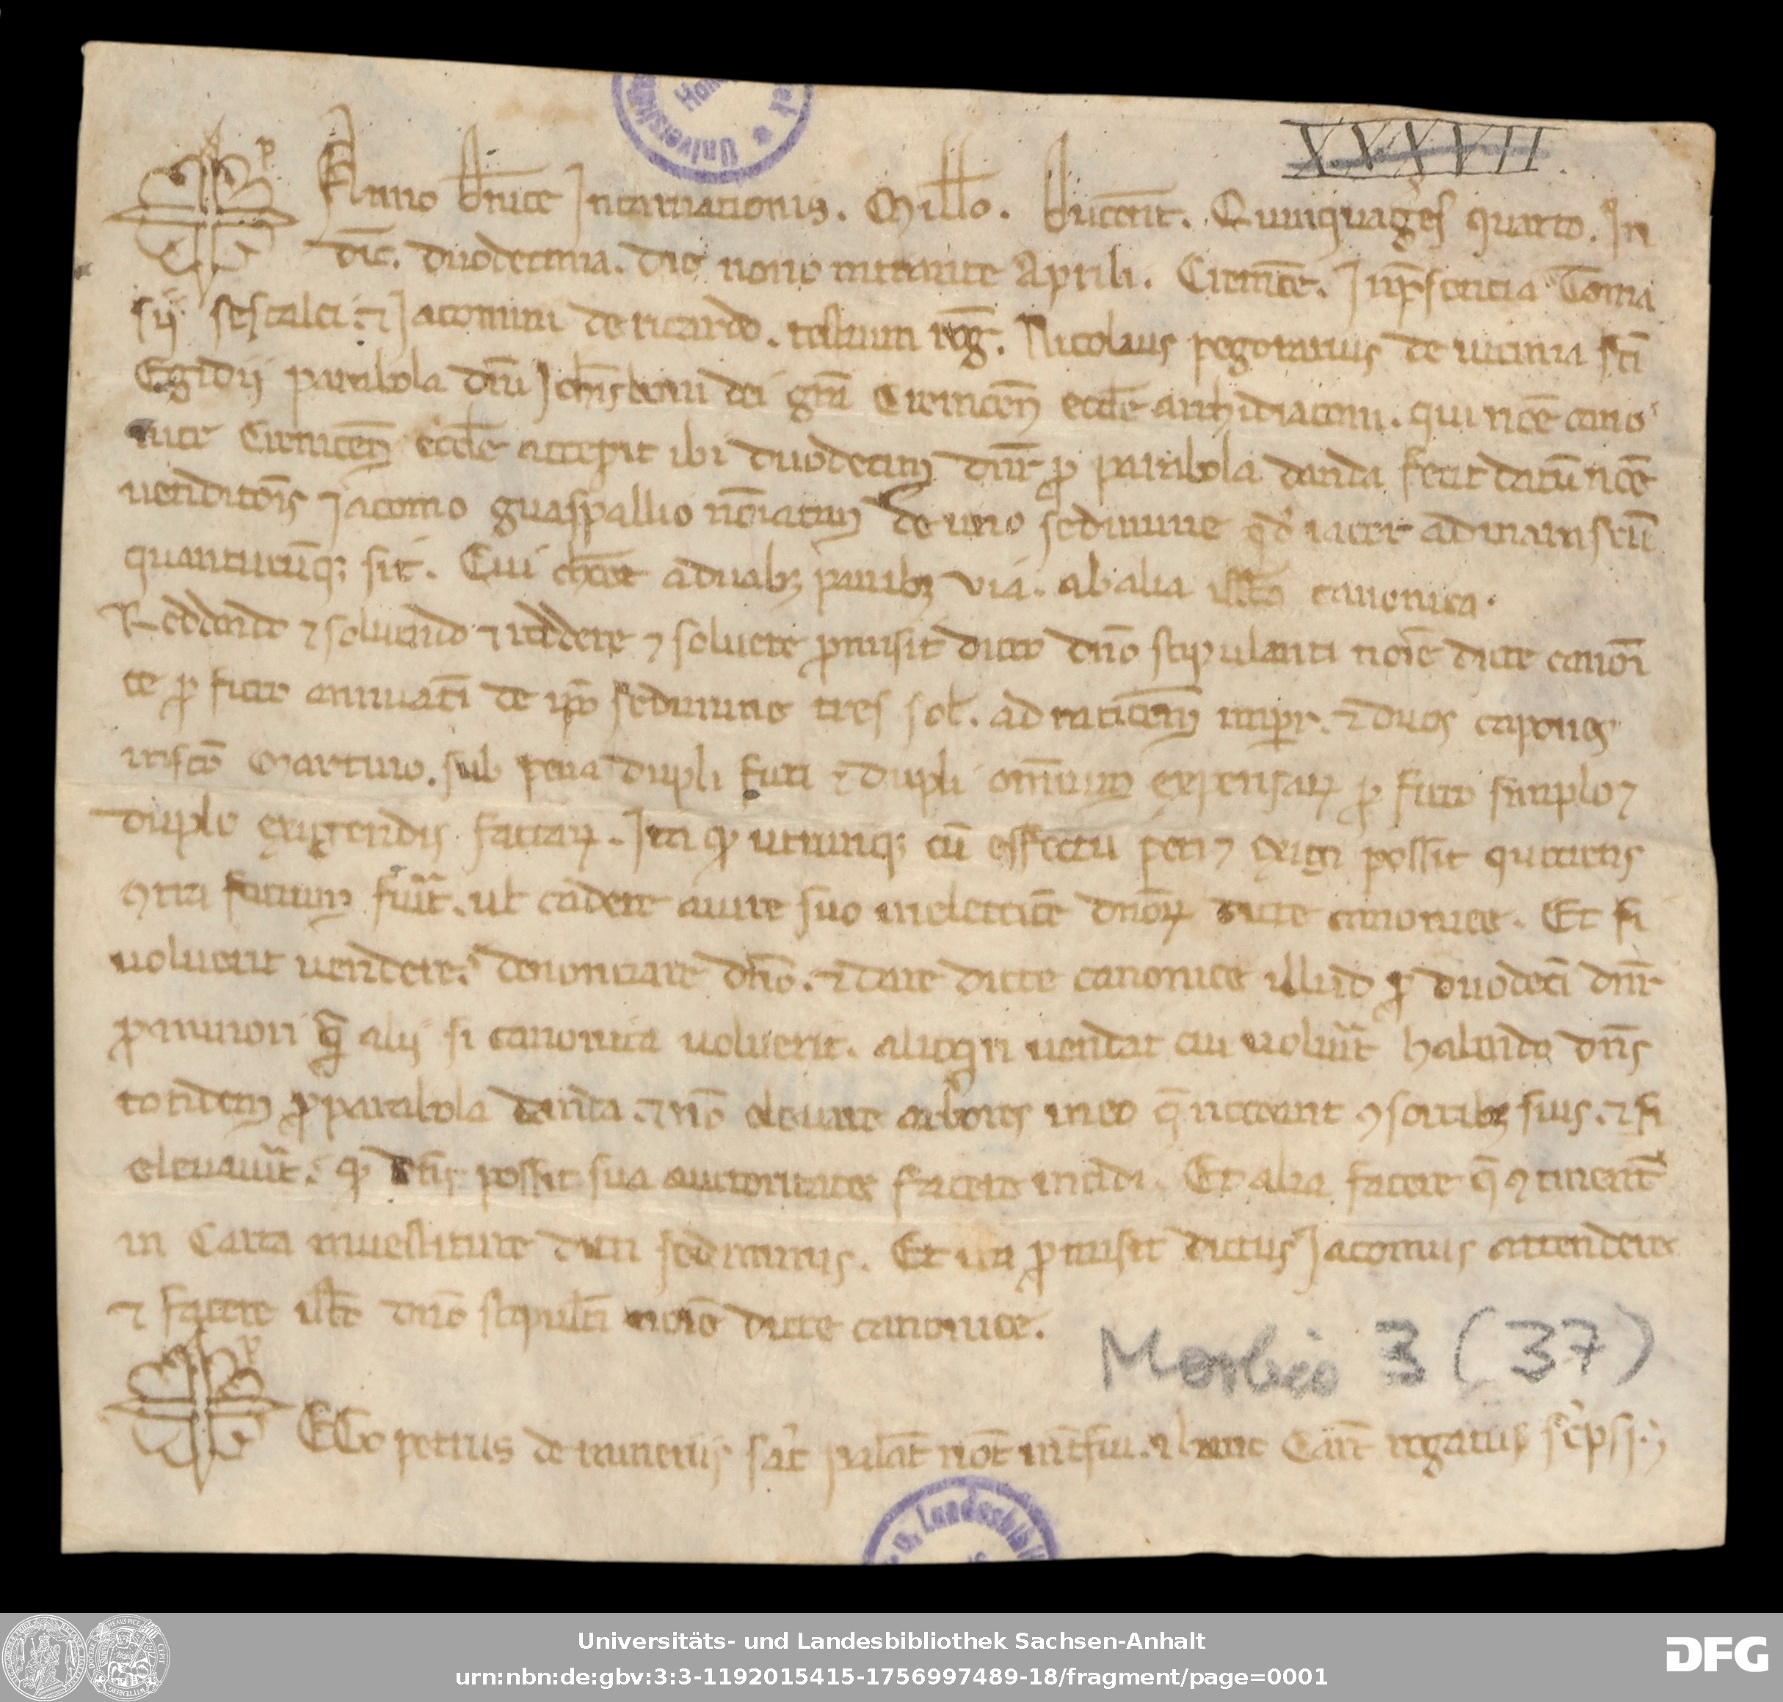 XXXVII
Anno dnice Incarnationis. Millo. ducent. Quinquages quarto. In
dic. duodecima. die nono intrante Aprili. Cremone. In psencia Toma
sii sescalci. ⁊ Jacomini de ricardo. testium rog. Nicolaus pegorarius de uicinia sci
Egidii parabola dni Johis boni dei gra Cremonen eccle archidiaconi. qui noe cano
nice Cremonen eccle accepit ibi duodecim dnr p parabola danda fecit datu noe
uenditois Jacomo guaspallio noiatim de uno sedimine qd iacet ad mainsciu
quantucuq; sit. Cui choet a duab; partib; via. ab alia illa canonica.
Reddendo ⁊ soluendo ⁊ reddere ⁊ soluere pmisit dicto dno stipulanti noie dicte canoni
ce p ficto annuati de ipo sedimine tres sol. ad racionem impr. ⁊ duos capones
in sco Martino. sub pena dupli ficti ⁊ dupli omnium expensaꝝ p ficto simplo ⁊
duplo exigendis factaꝝ. Ita qd utrumq; cu effectu peti ⁊ exigi possit quociens
ꝯtra factum fuit. ul cadere a iure suo in electioe dnoꝝ dicte canonice. Et si
uoluerit uendere. denonciare dno. ⁊ dare dicte canonice illud p duodeci dnr
p minori qm alii si canonica uoluerit. alioqn uendat cui uoluit habendo dns
totidem p parabola danda. ⁊ no eleuare arbores in eo q noceant ꝯsortib; suis. ⁊ si
eleuauit. qd dns possit sua auctoritate facere incidi. Et alia facere q ꝯtinent
in Carta inuestiture dicti sediminis. Et ita pmisit dictus Jacomus attendere
⁊ facere illi dno stipulti noie dicte canonice.
Morbio 3 (37)
EGo petrus de sac palac not int fui. ⁊ hanc Cart rogatus scpsi.
Universitäts- und Landesbibliothek Sachsen-Anhalt
urn:nbn:de:gbv:3:3-1192015415-1756997489-18/fragment/page=0001
DFG